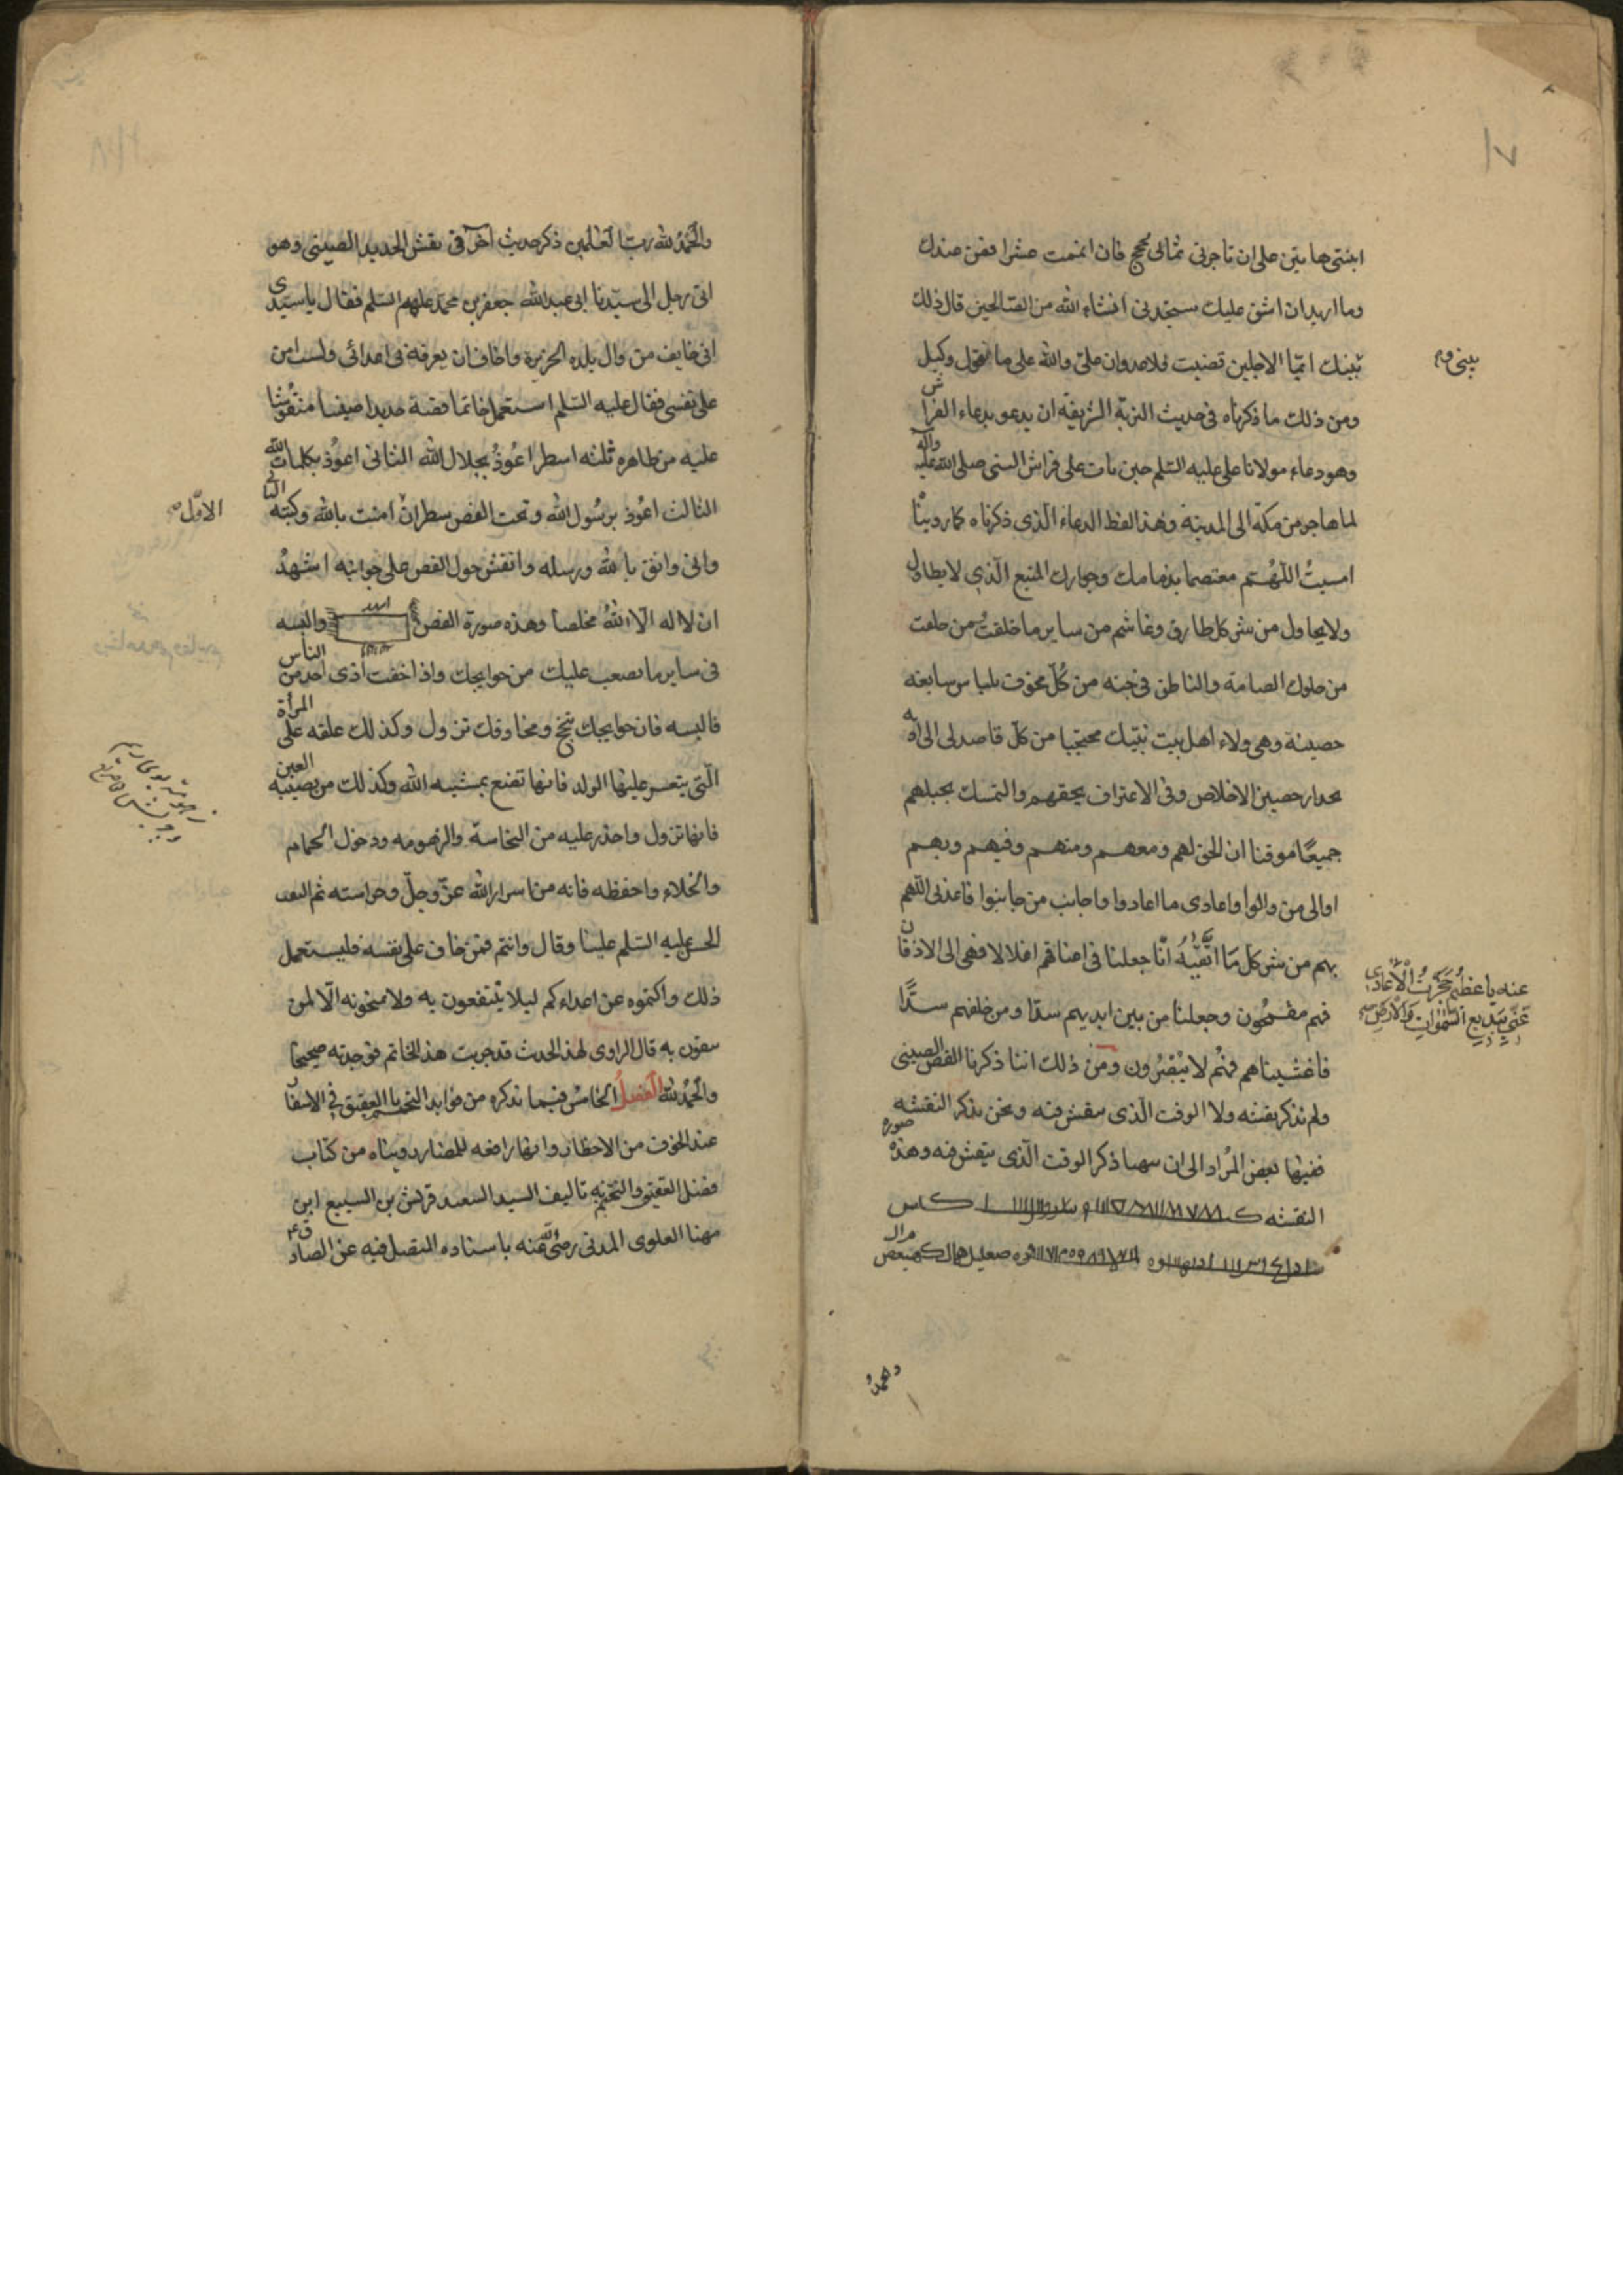 ابنتي هاتين على ان تاجرني ثماني حجج فان اتممت عشرا فمن عندك
وما اريد ان اشق عليك ستجدني انشاء الله من الصالحين قال ذلك
بينك ايما الاجلين قضيت فلا عدوان على والله على ما نقول وكيل
بيني وم
ومن ذلك ما ذكرناه فى حديث التربة الشريفة ان يدعو بدعاء الفراش
وهو دعاء مولانا على عليه السلم حين بات على فراش النبى صلى الله عليه وآله
لما هاجر من مكة الى المدينة وهذا لفظ الدعاء الذى ذكرناه كما روينا
امسيت اللهم معتصما بذمامك وجوارك المنيع الذي لا يطاول
ولا يحاول من شر كل طارق وغاشم من ساير ما خلقت ومن خلقت
من خلقك الصامت والناطق فى جنه من كل مخوف بلباس سابغه
حصينة وهى ولاء اهل بيت نبيك محتجبا من كل قاصد لى الى اذيه
بجدار حصين الاخلاص وفى الاعتراف بحقهم والتمسك بحبلهم
جميعا موقنا ان الحق لهم ومعهم ومنهم وفيهم وبهم
اوالى من والوا واعادى ما اعادوا واجانب من جانبوا فاعذنى اللهم
بهم من شر كل ما اتقيه انا جعلنا فى اعناقهم اغلالا فهى الى الاذقان
عنه يا عظيم حجزت الاعادى
عني ببديع السموات والارض
فهم مقمحون وجعلنا من بين ايديهم سدا ومن خلفهم سدا
فاغشيناهم فهم لا يبصرون ومن ذلك اننا ذكرنا الفص الصينى
ولم نذكر نقشه ولا الوقت الذى ينقش فيه ونحن نذكر النقشه
ففيها بعض المراد الى ان سهبا ذكر الوقت الذى ينقش فيه وهذه صورة
النقشه
كهيعص
وهمه
والحمد لله رب العالمين ذكر حديث آخر فى نقش الحديد الصينى وهو
اتى رجل الى سيدنا ابى عبد الله جعفر بن محمد عليهم السلم فقال يا سيدى
انى خايف من وال بلده الجزيرة واخاف ان يعرفه بى اعدائى ولست امن
على نفسى فقال عليه السلم استعمل خاتما فضة حديدا صينيا منقوشا
عليه من ظاهره ثلثه اسطر اعوذ بجلال الله الثانى اعوذ بكلمات الله
الاول
الثالث اعوذ برسول الله وتحت الفص سطران امنت بالله وكتبه الثا
وانى واثق بالله ورسله وانقش حول الفص على جوانبه اشهد
ان لا اله الا الله مخلصا وهذه صورة الفص والبسه
فى ساير ما يصعب عليك من حوايجك واذا خفت اذى احد من الناس
فالبسه فان حوايجك تنجح ومخاوفك تزول وكذلك علقه على المرأة
التى يتعسر عليها الولد فانها تضع بمشيه الله وكذلك من يصيبه العين
فانها تزول واحذر عليه من النجاسة والزهومه ودخول الحمام
والخلاء واحفظه فانه من اسرار الله عز وجل وحراسته ثم التفت
الحسن عليه السلم علينا وقال وانتم فمن خاف على نفسه فليستعمل
ذلك واكتموه عن اعداءكم ليلا ينتفعون به ولا تمنحونه الا لمن
تثقون به قال الراوى لهذا الحديث قد جربت هذا الخاتم فوجدته صحيحا
والحمد لله الفصل الخامس فيما نذكره من فوايد التختم بالعقيق في الاسفار
عند الخوف من الاخطار وانها رافعه للمضار روينا من كتاب
فضل العقيق والتختم به تاليف السيد السعيد قريش بن السبيع ابن
مهنا العلوى المدنى رضى الله عنه باسناده المتصل فيه عن الصادق ع